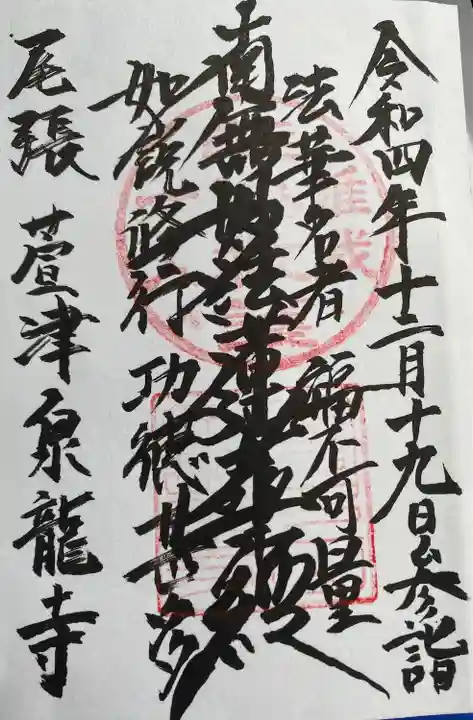 令和四年十二月十九日参詣
法華名者 福不可量
南無妙法蓮華経
如説修行 功徳甚多
尾張 萱津 泉龍寺